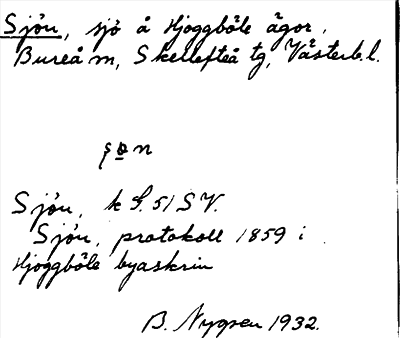 Sjön, sjö å Hjoggböle ägor,
Bureå m, Skellefteå tg, Västerb.l.
şo̱n
Sjön, k S. 51 SV.
Sjön, protokoll 1859 i
Hjoggböle byaskrin
B. Nygren 1932.